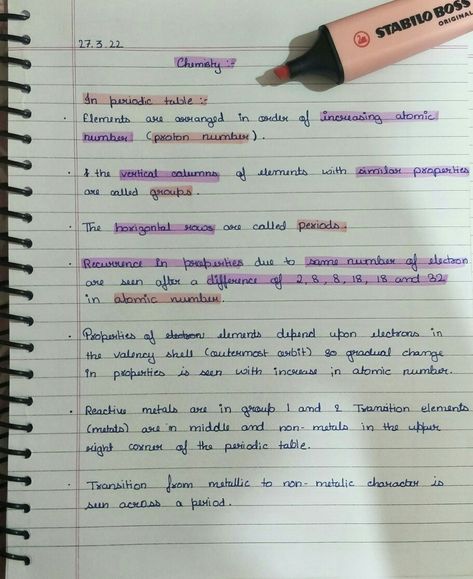 STABILO BOSS
ORIGINAL
27.3.22
Chemisty :-
In periodic table :-
Elements are arranged in order of increasing atomic
number (proton number).
& the vertical columns of elements with similar properties
are called groups.
The horizontal rows are called periods.
Recurrence in properties due to same number of electron
are seen after a difference of 2, 8, 8, 18, 18 and 32
in atomic number.
Properties of electron elements depend upon electrons in
the valency shell (outermost orbit) so gradual change
in properties is seen with increase in atomic number.
Reactive metals are in group 1 and 2 Transition elements
(metals) are in middle and non-metals in the upper
right corner of the periodic table.
Transition from metallic to non-metalic character is
seen across a period.